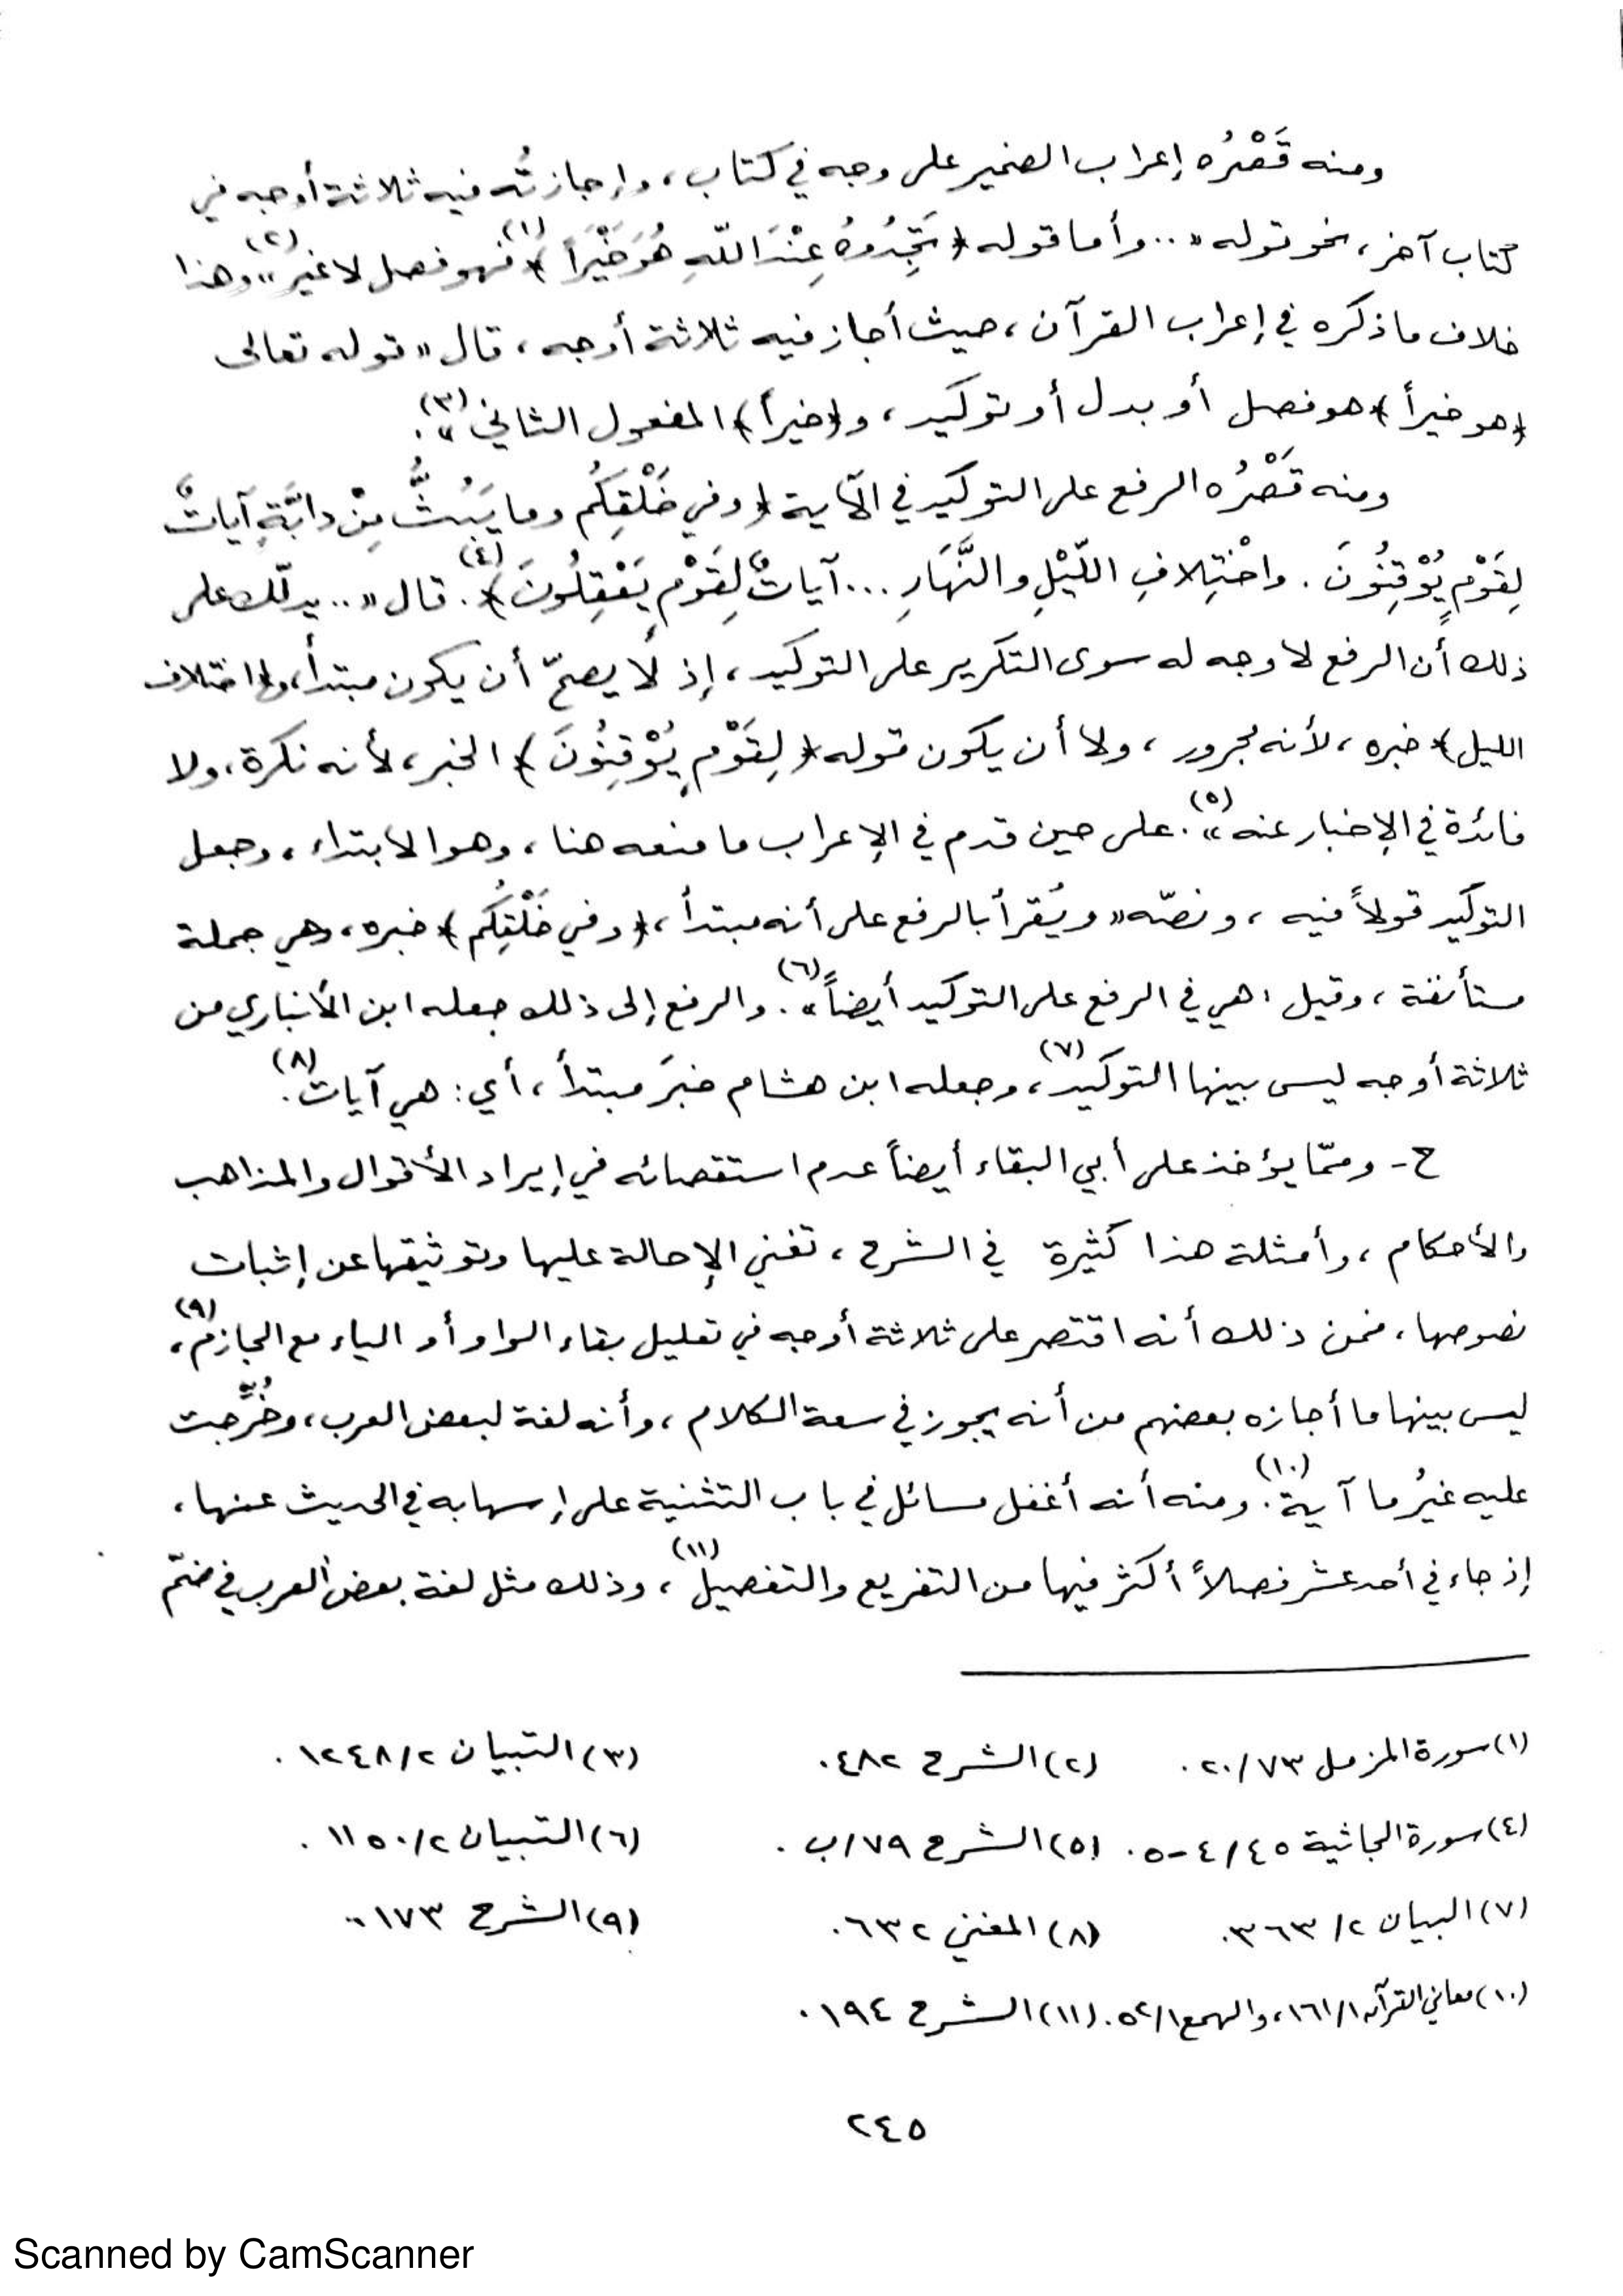 ومنه قَصْرُه إعراب الضمير على وجه في كتاب، وإجازتُه فيه ثلاثة أوجه في
كتاب آخر، نحو قوله «.. وأما قوله ﴿تَجِدُوهُ عِنْدَ اللّهِ هُوَ خَيْرَاً﴾(١) فهو فصل لا غيرُ»(٢) وهذا
خلاف ما ذكره في إعراب القرآن، حيث أجاز فيه ثلاثة أوجه، قال «قوله تعالى
﴿هو خيراً﴾ هو فصل أو بدل أو توكيد، و﴿خيراً﴾ المفعول الثاني»(٣).
ومنه قَصْرُه الرفع على التوكيد في الآية ﴿وفي خَلْقِكُم وما يَبُثُّ مِنْ دابَّةٍ آياتٌ
لِقَوْمٍ يُوْقِنُونَ. واخْتِلافِ اللّيْلِ والنَّهَارِ ... آياتٌ لِقَوْمٍ يَعْقِلُونَ﴾(٤). قال «.. يدلّك على
ذلك أن الرفع لا وجه له سوى التكرير على التوكيد، إذ لا يصحّ أن يكون مبتدأ، و﴿اختلاف
الليل﴾ خبره، لأنه مجرور، ولا أن يكون قوله ﴿لِقَوْمٍ يُوْقِنُونَ﴾ الخبر، لأنه نكرة، ولا
فائدة في الإخبار عنه»(٥). على حين قدم في الإعراب ما منعه هنا، وهو الابتداء، وجعل
التوكيد قولاً فيه، ونصّه «ويُقرأ بالرفع على أنه مبتدأ، ﴿وفي خَلْقِكُم﴾ خبره، وهي جملة
مستأنفة، وقيل: هي في الرفع على التوكيد أيضاً»(٦). والرفع إلى ذلك جعله ابن الأنباري من
ثلاثة أوجه ليس بينها التوكيد(٧)، وجعله ابن هشام خبرَ مبتدأ، أي: هي آيات(٨).
ح - وممّا يؤخذ على أبي البقاء أيضاً عدم استقصائه في إيراد الأقوال والمذاهب
والأحكام، وأمثلة هذا كثيرة في الشرح، تغني الإحالة عليها وتوثيقها عن إثبات
نصوصها، فمن ذلك أنه اقتصر على ثلاثة أوجه في تعليل بقاء الواو أو الياء مع الجازم(٩)،
ليس بينها ما أجازه بعضهم من أنه يجوز في سعة الكلام، وأنه لغة لبعض العرب، وخُرِّجت
عليه غيرُ ما آية(١٠). ومنه أنه أغفل مسائل في باب التثنية على إسهابه في الحديث عنها،
إذ جاء في أحد عشر فصلاً أكثر فيها من التفريع والتفصيل(١١)، وذلك مثل لغة بعض العرب في ضمّ
(١) سورة المزمل ٢٠/٧٣. (٢) الشرح ٤٨٢. (٣) التبيان ١٢٤٨/٢.
(٤) سورة الجاثية ٤/٤٥-٥. (٥) الشرح ٧٩/ب. (٦) التبيان ١١٥٠/٢.
(٧) البيان ٣٦٣/٢. (٨) المغني ٦٣٢. (٩) الشرح ١٧٣.
(١٠) معاني القرآن ١٦١/١، والهمع ٥٢/١. (١١) الشرح ١٩٤.
٢٤٥
Scanned by CamScanner